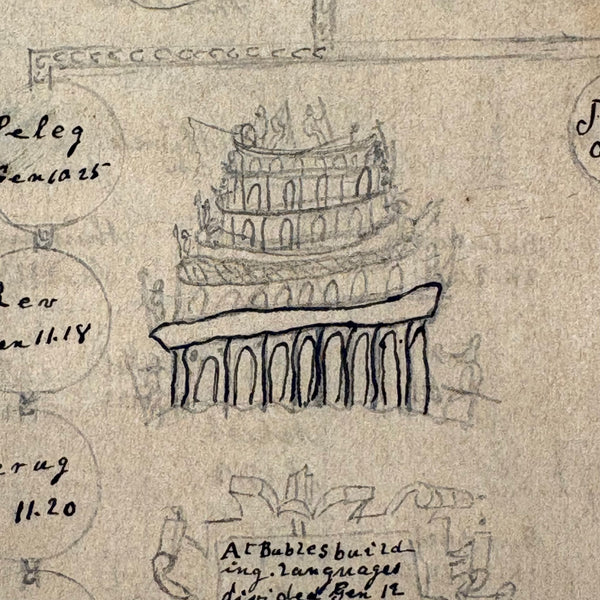 Peleg
Gen 10 25
Rev
en 11.18
erug
11.20
At Bables build
ing. languages
divided Gen 12